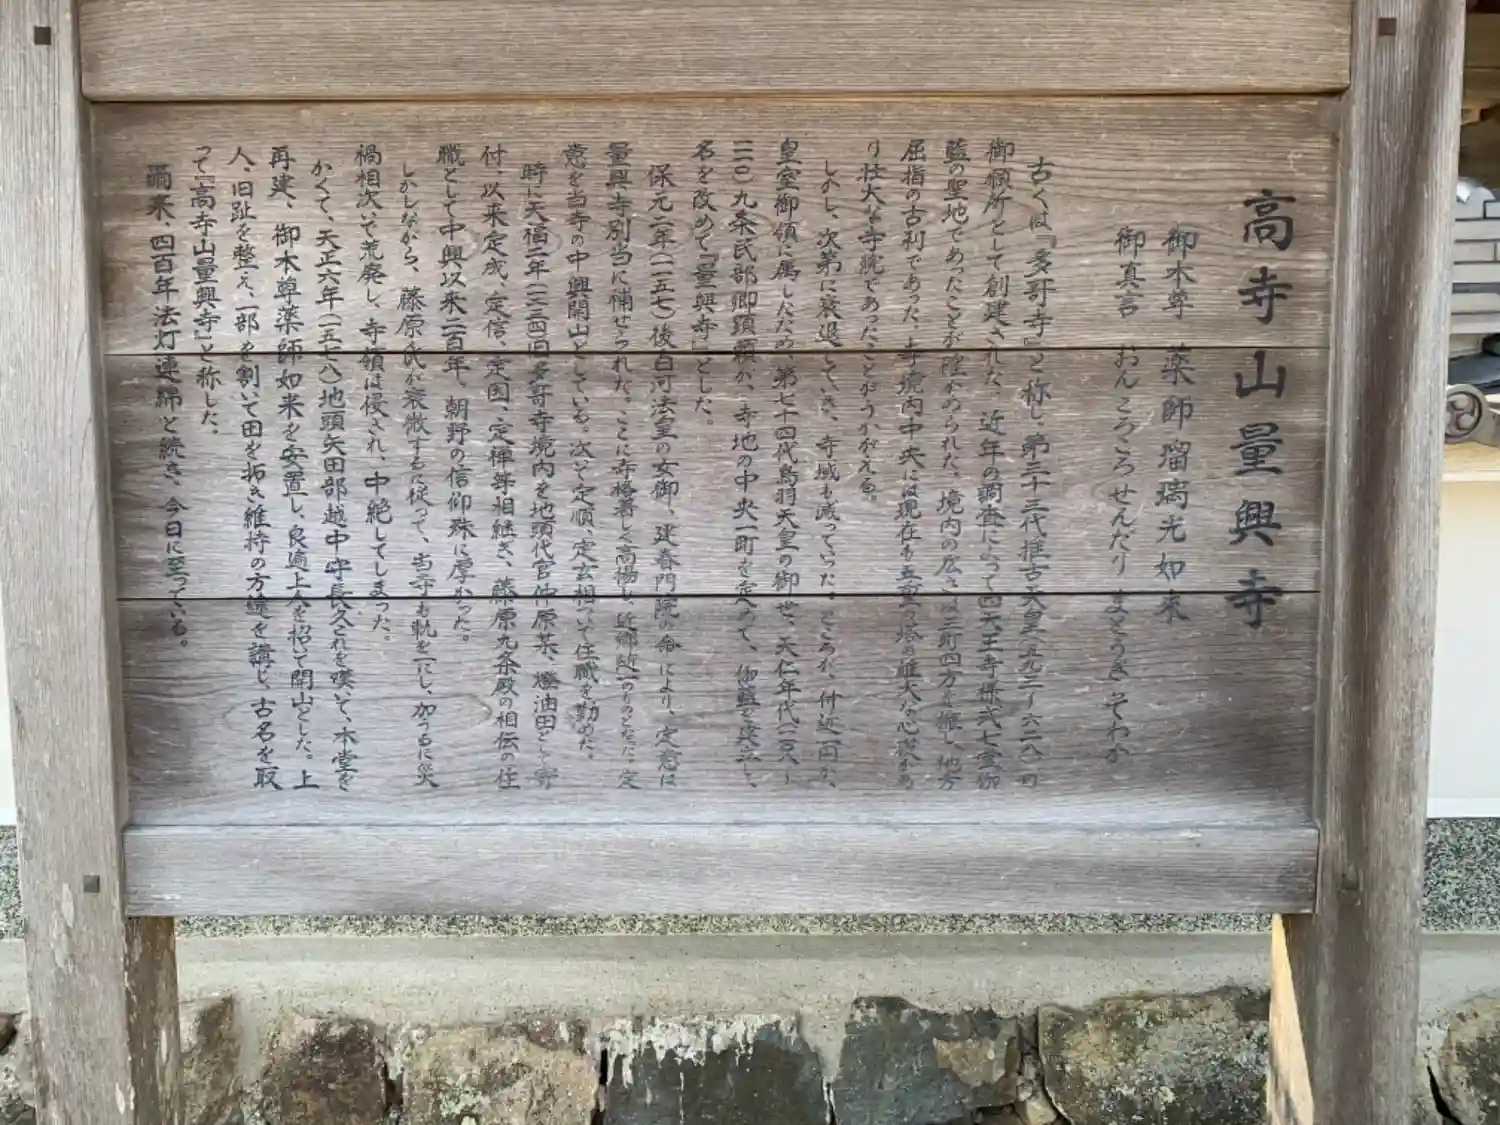 高寺山量興寺
御本尊 薬師瑠璃光如来
御真言 おん ころころ せんだり まとうぎ そわか
古くは『多哥寺』と称し、第三十三代推古天皇(五九二ー六二八)の
御願所として創建された。近年の調査によって四天王寺様式七堂伽
藍の聖地であったことが確かめられた。境内の広さは三町四方を擁し、地方
屈指の古刹であった。寺境内中央には現在も五重の塔の雄大な心礎があ
り壮大な寺院であったことがうかがえる。
しかし、次第に衰退していき、寺域も減っていった。ところが、付近一円が、
皇室御領に属したため、第七十四代鳥羽天皇の御世、天仁年代(一一〇八ー
一一一〇)九条民部卿顕頼が、寺地の中央一町を定めて、伽藍を建立し、
名を改めて『量興寺』とした。
保元二年(一一五七)後白河法皇の女御、建春門院の命により、定意は
量興寺別当に補せられた。ことに寺格著しく高揚し、近郷随一のものとなった。定
意を当寺の中興開山としている。次で定順、定玄相いで住職を勤めた。
時に天福二年(一二三四)旧多哥寺境内を地頭代官仲原某、燈油田として寄
付、以来定成、定信、定国、定禅等相継ぎ、藤原九条殿の相伝の住
職として中興以来二百年、朝野の信仰殊に厚かった。
しかしながら、藤原氏が衰微するに従って、当寺も軌を一にし、加うるに災
禍相次いで荒廃し、寺領は侵され、中絶してしまった。
かくて、天正六年(一五七八)地頭矢田部越中守長久これを嘆いて、本堂を
再建、御本尊薬師如来を安置し、良遍上人を招いて開山とした。上
人、旧趾を整え、一部を割いて田を拓き維持の方途を講じ、古名を取
って『高寺山量興寺』と称した。
爾来、四百年法灯連綿と続き、今日に至っている。